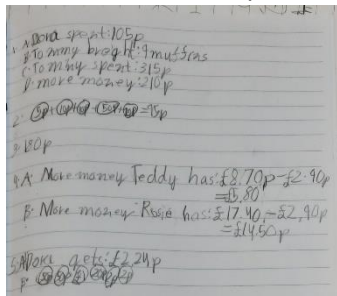 1. A. Dora spent: 105p
B. Tommy bought: 9 muffins
C. Tommy spent: 315p
D. more money: 210p
2. 5p+ =95p
3. 130p
4. A. More money Teddy has: £8.70p-£2.90p
=£5.80
B. More money Rosie has: £17.40-£2,90p
=£14.50p
5. A Dora gets: £2,24p
B.